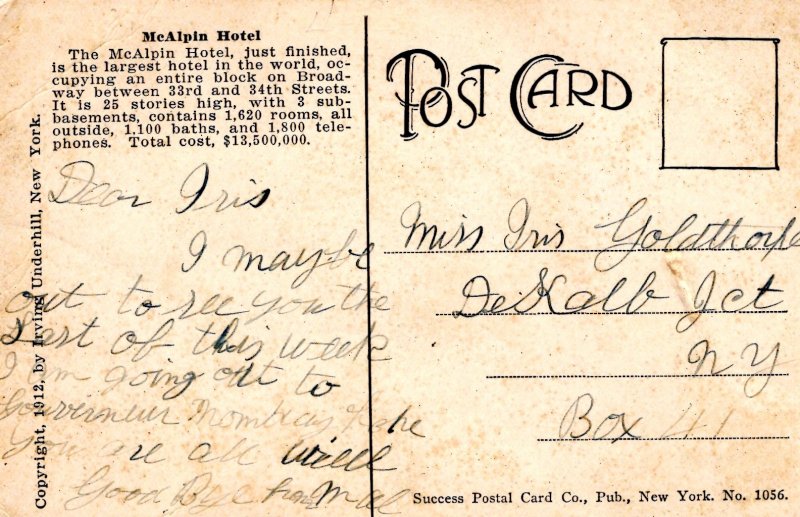 McAlpin Hotel
The McAlpin Hotel, just finished,
is the largest hotel in the world, oc-
cupying an entire block on Broad-
way between 33rd and 34th Streets.
It is 25 stories high, with 3 sub-
basements, contains 1,620 rooms, all
outside, 1,100 baths, and 1,800 tele-
phones. Total cost, $13,500,000.
Copyright, 1912, by Irving Underhill, New York.
Dear Iris
I maybe
out to see you the
last of this week
I am going out to
Gouverneur Hope
You are all well
Good Bye from
POST CARD
Miss Iris Goldthorpe
DeKalb Jct
NY
Box 41
Success Postal Card Co., Pub., New York. No. 1056.